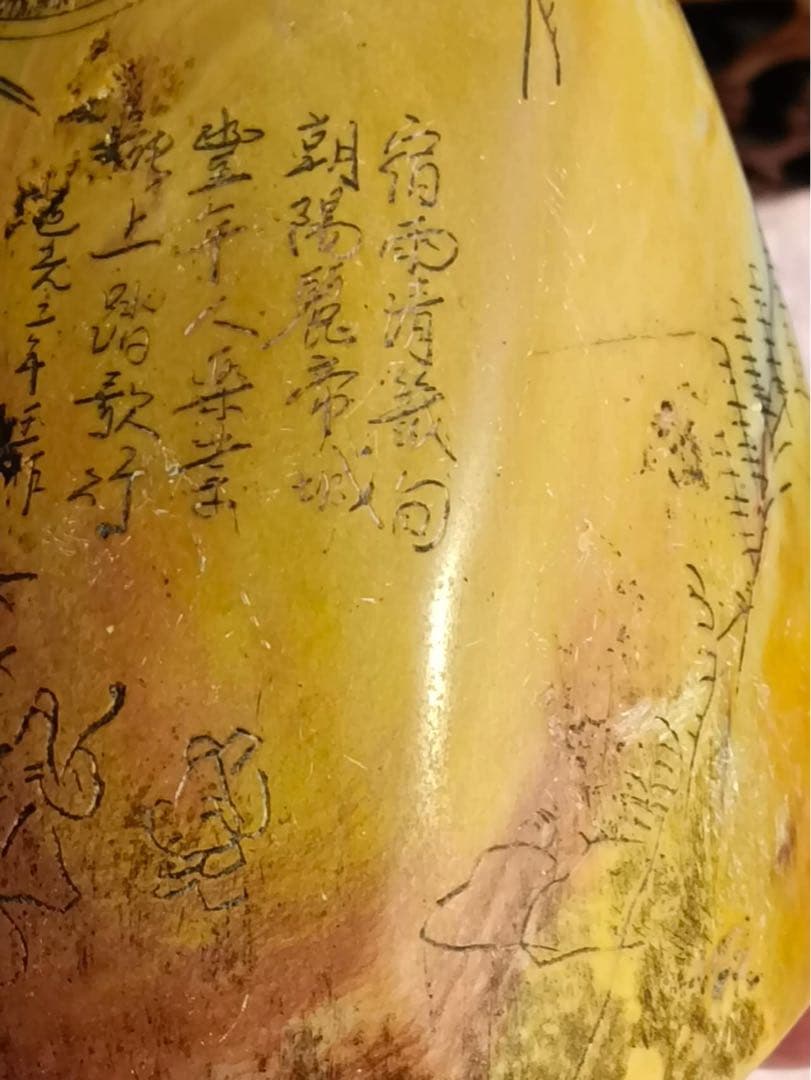 宿雨清畿甸
朝陽麗帝城
豐年人樂業
上踏歌行
道光三年